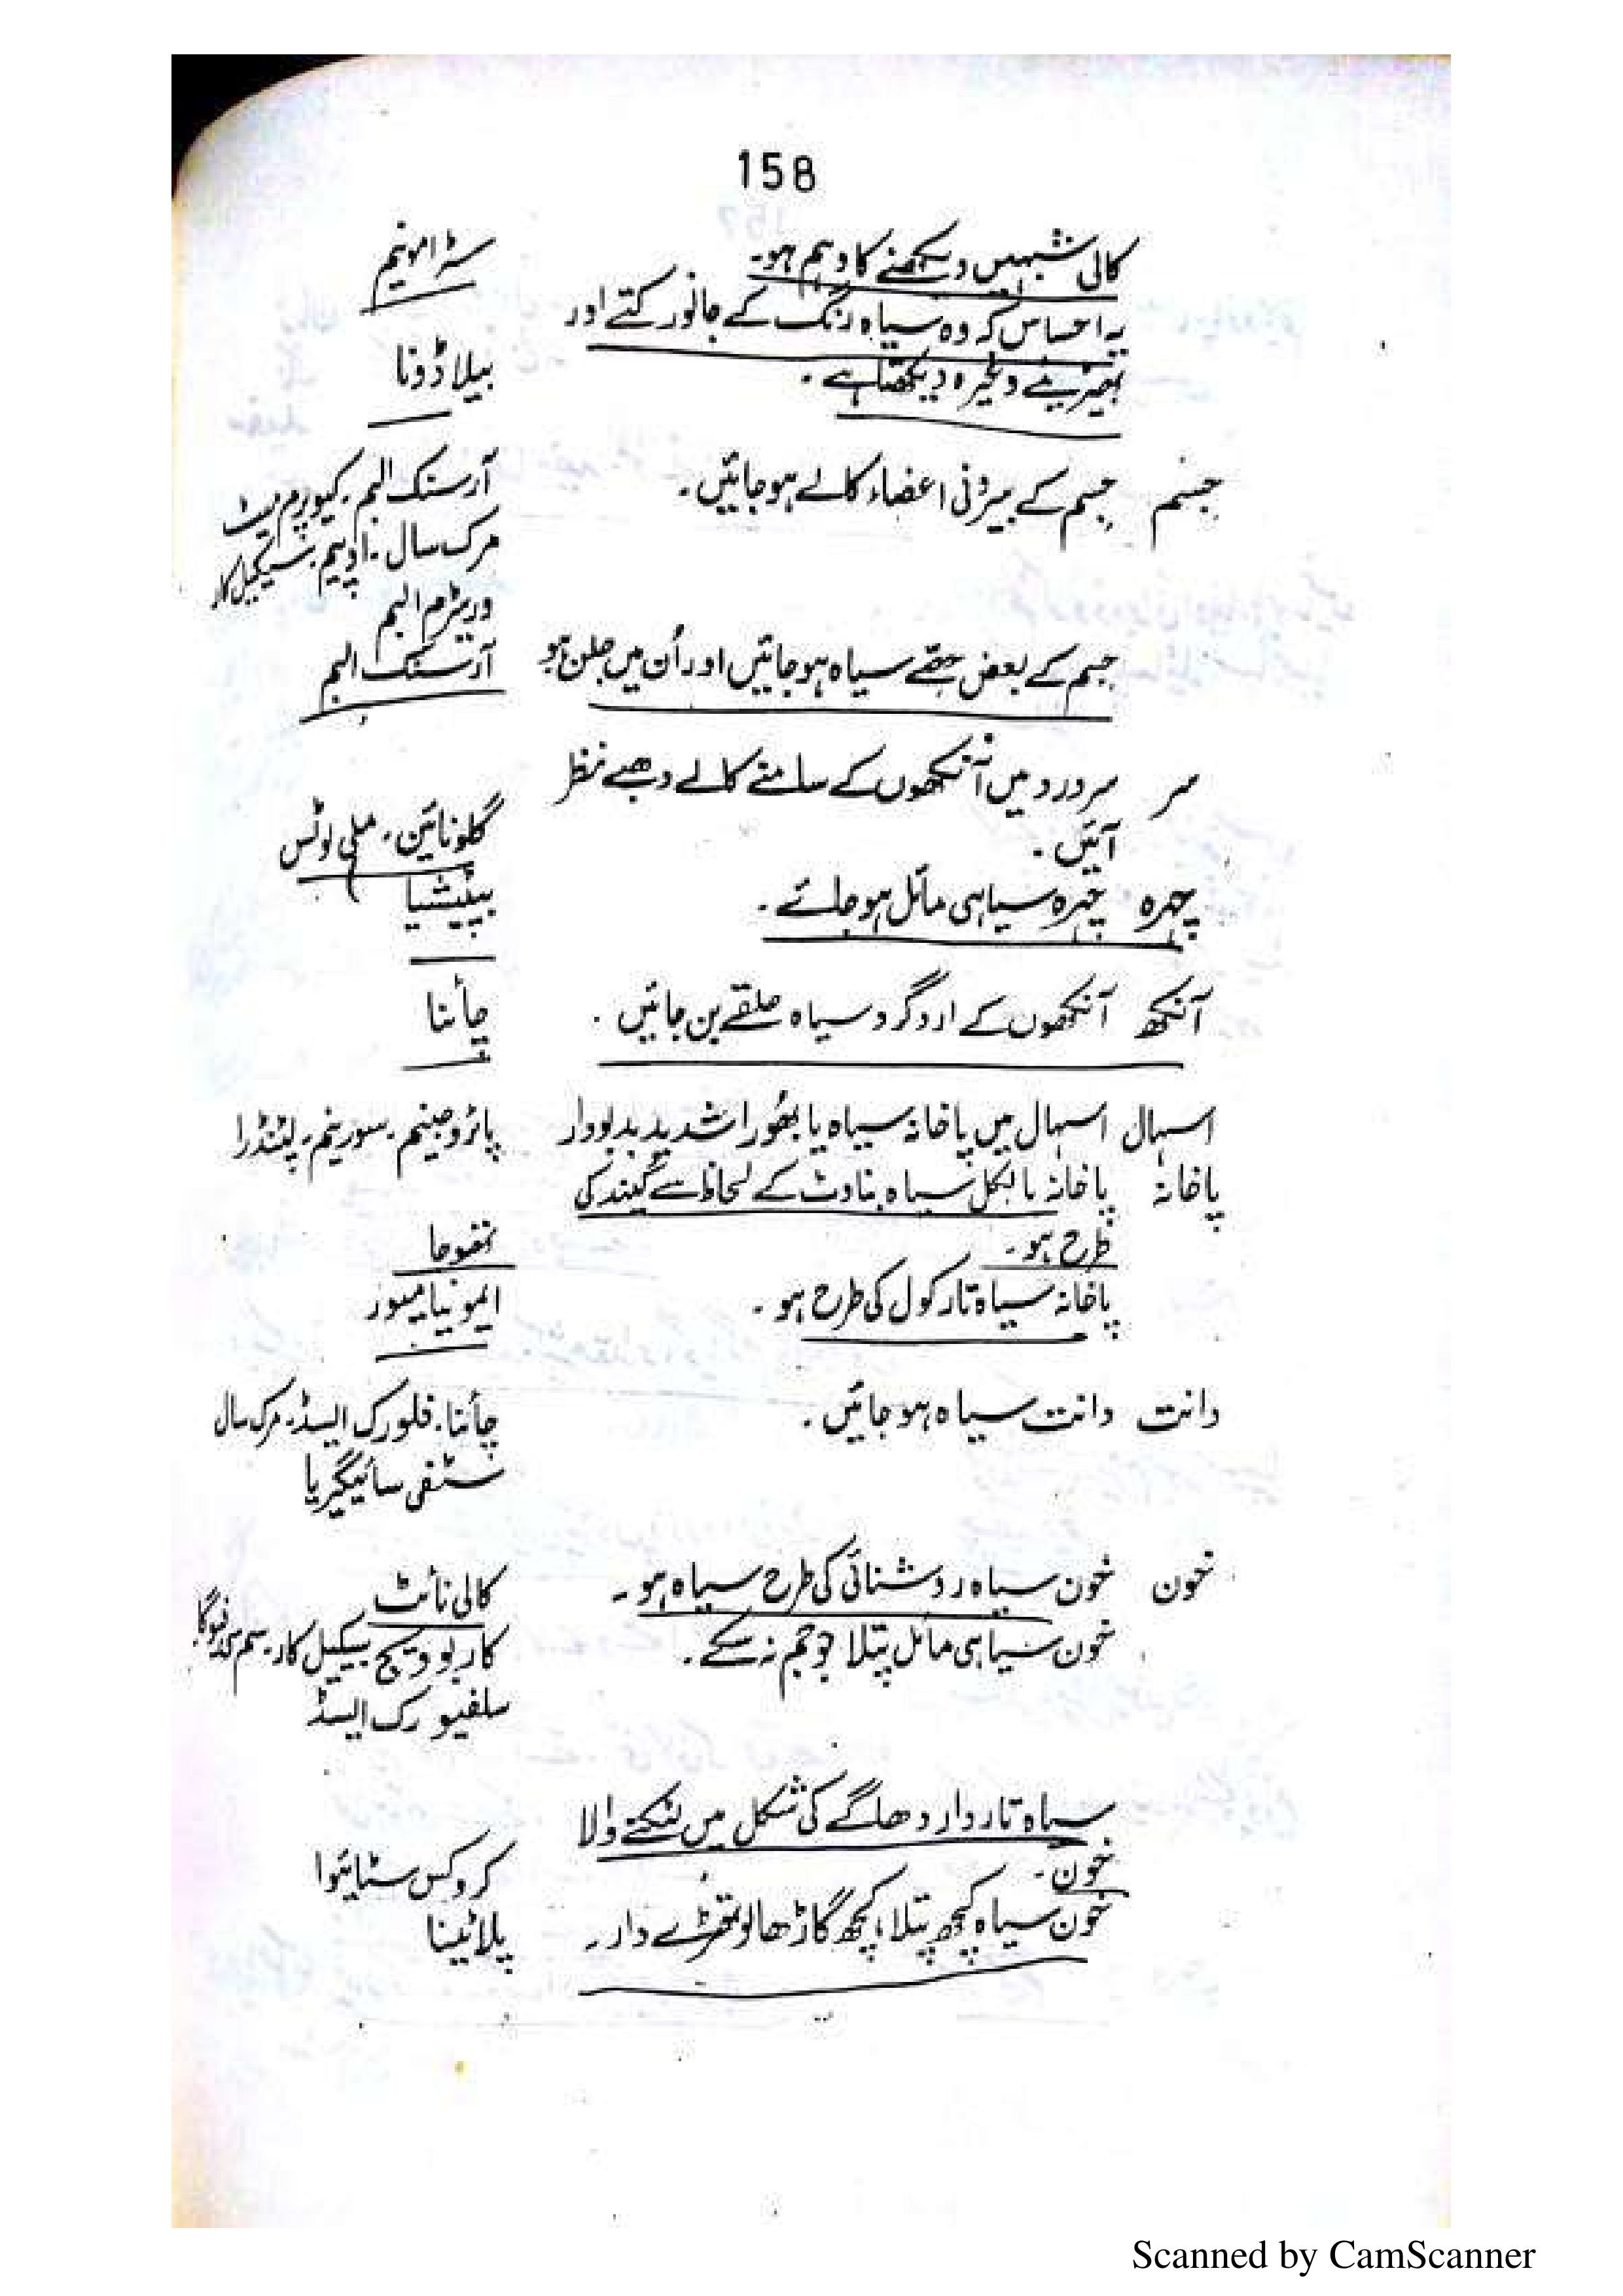 158
کالی شبہیں دیکھنے کا وہم ہو۔ سٹرامونیم
یہ احساس کہ وہ سیاہ رنگ کے جانور کتے اور
بھیڑیئے وغیرہ دیکھتا ہے۔ بیلاڈونا
جسم جسم کے بیرونی اعضاء کالے ہو جائیں۔ آرسنک البم۔ کیوپرم میٹ
مرک سال۔ اوپیم۔ سیکیل کار
وریٹرم البم
جسم کے بعض حصّے سیاہ ہو جائیں اور اُن میں جلن ہو آرسنک البم
سر سر درد میں آنکھوں کے سامنے کالے دھبے نظر
آئیں۔ گلونائین۔ ملی لوٹس
چہرہ چہرہ سیاہی مائل ہو جائے۔ بپٹیشیا
آنکھ آنکھوں کے اردگرد سیاہ حلقے بن جائیں۔ چائنا
اسہال اسہال میں پاخانہ سیاہ یا بھُورا شدید بدبودار پائروجینم۔ سورینم۔ لپٹنڈرا
پاخانہ پاخانہ بالکل سیاہ بناوٹ کے لحاظ سے گیند کی
طرح ہو۔ تھوجا
پاخانہ سیاہ تارکول کی طرح ہو۔ ایمونیا میور
دانت دانت سیاہ ہو جائیں۔ چائنا۔ فلورک ایسڈ۔ مرک سال
سٹفی سائیگیریا
خون خون سیاہ روشنائی کی طرح سیاہ ہو۔ کالی نائٹ
خون سیاہی مائل پتلا جو جم نہ سکے۔ کاربو ویج سیکیل کار۔
سلفیورک ایسڈ
سیاہ تار دار دھاگے کی شکل میں لٹکنے والا
خون۔ کروکس سٹائیوا
خون سیاہ کچھ پتلا، کچھ گاڑھا لوتھڑے دار۔ پلاٹینا
Scanned by CamScanner